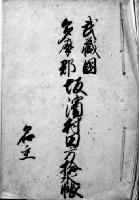 武蔵國
多摩郡坂濱村田方拾帳
名主